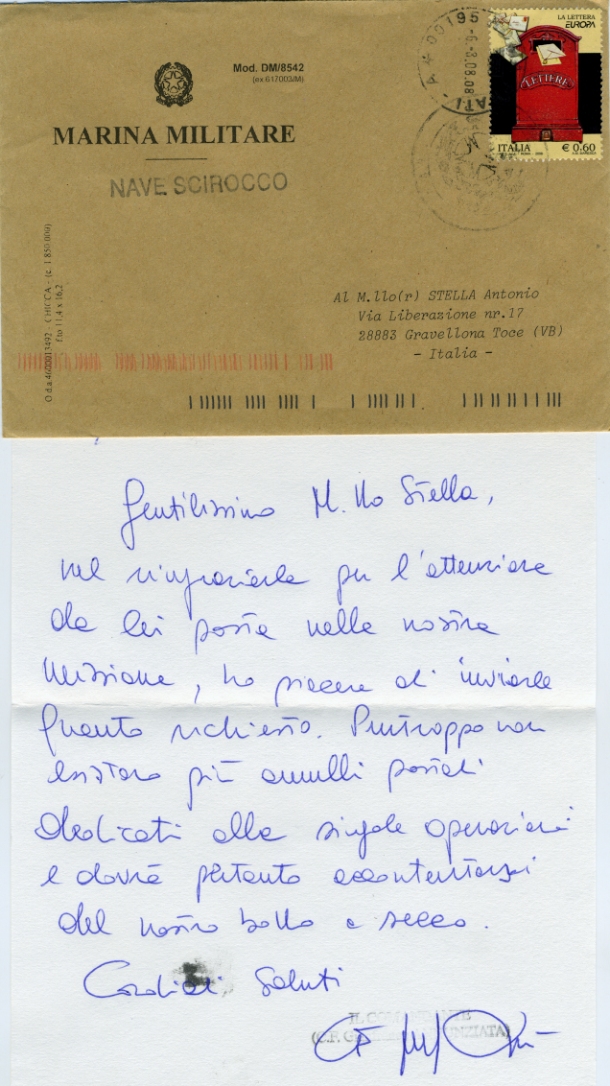 Mod. DM/8542
(ex 617003/M)
MARINA MILITARE
NAVE SCIROCCO
LA LETTERA
EUROPA
LETTERE
ITALIA
€ 0.60
00195
-6-3.08.08
Al M.llo(r) STELLA Antonio
Via Liberazione nr.17
28883 Gravellona Toce (VB)
- Italia -
f.to 11,4 x 16,2
Gentilissimo M.llo Stella,
nel ringraziarla per l'attenzione
da lei posta nella nostra
missione, ho piacere di inviarle
quanto richiesto. Purtroppo non
esistono più annulli postali
dedicati alle singole operazioni
e dovrà pertanto accontentarsi
del nostro bollo a secco.
Cordiali Saluti
IL COMANDANTE
(C.F.